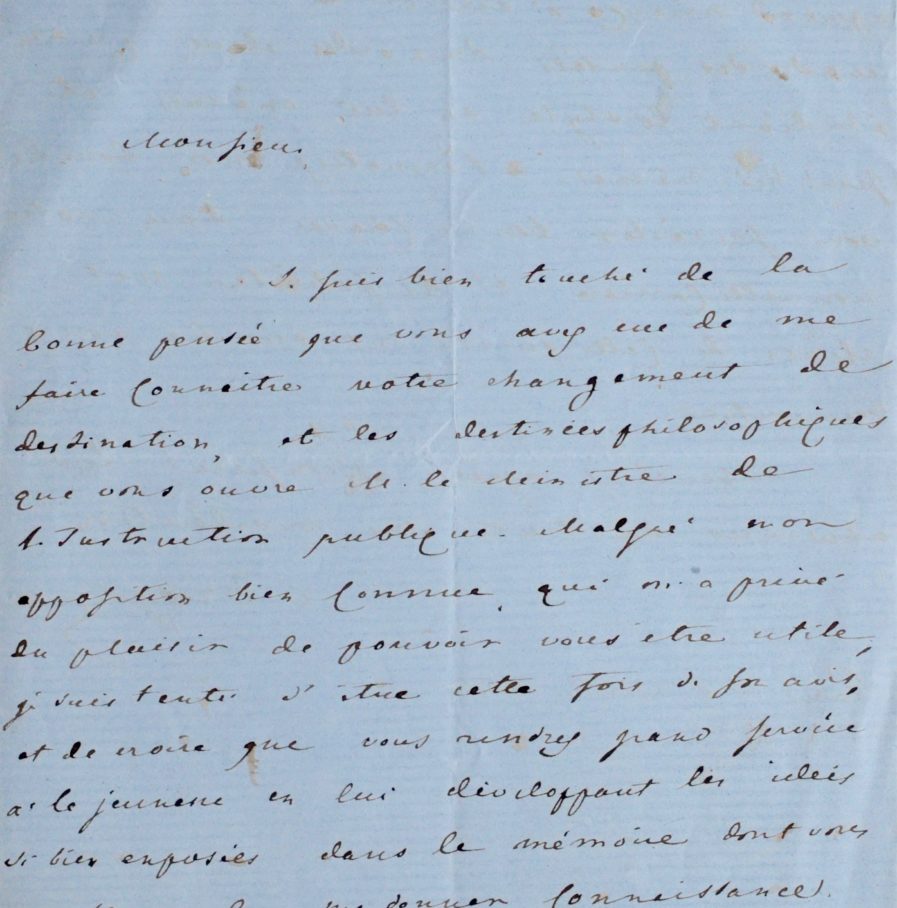 Monsieur,
Je suis bien touché de la
bonne pensée que vous avez eue de me
faire connaitre votre changement de
destination, et les destinées philosophiques
que vous ouvre M. le Ministre de
l'Instruction publique. Malgré mon
opposition bien connue, qui m'a privé
du plaisir de pouvoir vous etre utile,
je suis tenté d'être cette fois de son avis,
et de croire que vous rendrez grand service
à la jeunesse en lui développant les idées
si bien exposées dans le mémoire dont vous
me donner connaissance.